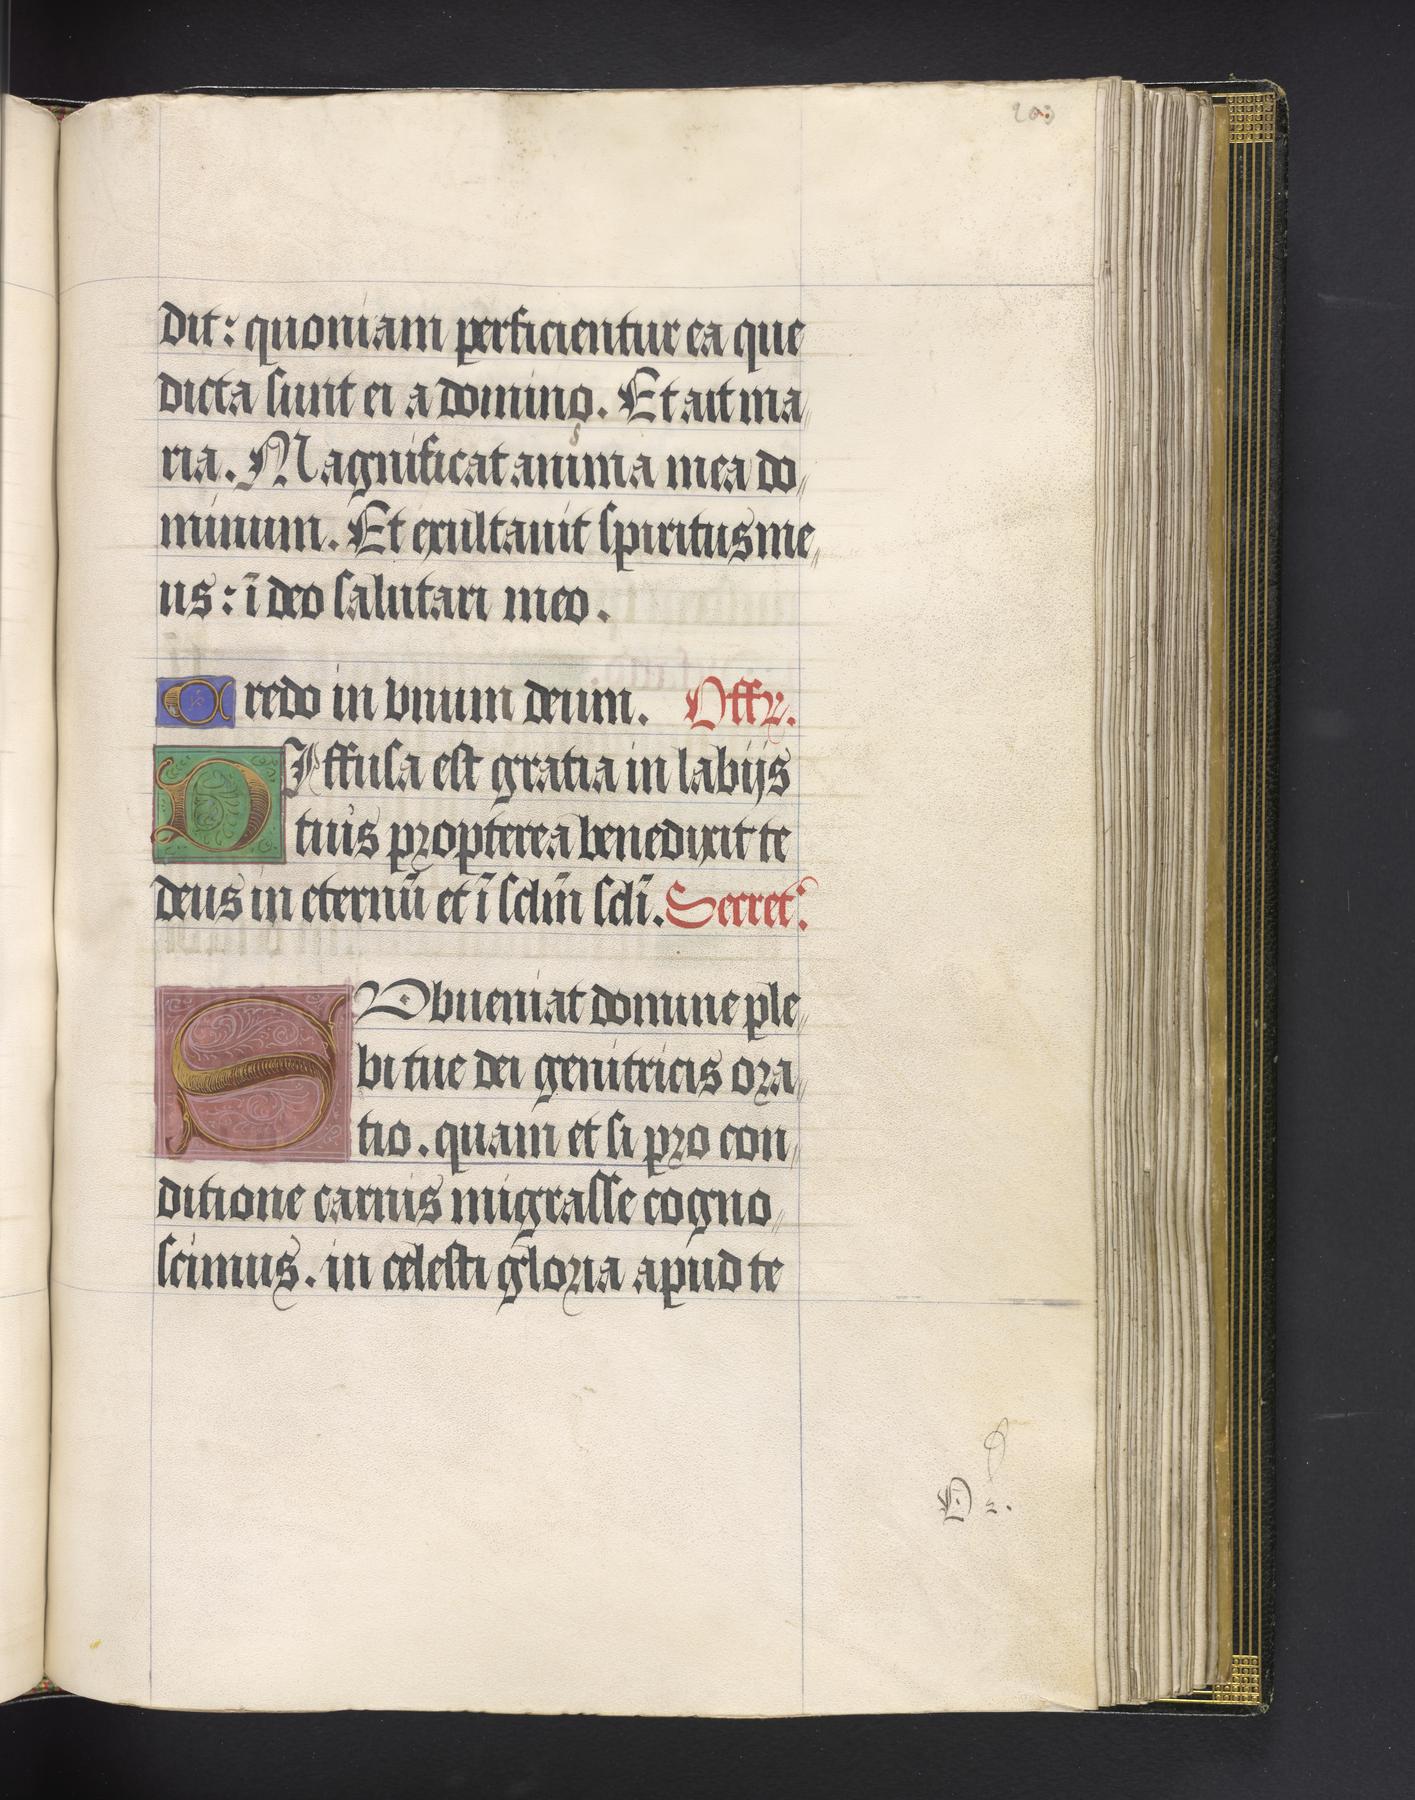 203
dit: quoniam perficientur ea que
dicta sunt ei a domino. Et ait ma//
ria. Magnificat anima mea do//
minum. Et exultauit spiritus me//
us: ī deo salutari meo.
Credo in vnum deum. Offr.
DIffusa est gratia in labijs
tuis propterea benedixit te
deus in eternū et ī sclm̄ sclī. Secret:
SVbueniat domine ple//
bi tue dei genitricis ora//
tio. quam et si pro con//
ditione carnis migrasse cogno//
scimus. in celesti gloria apud te
D 2.